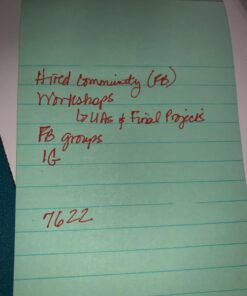 Hired Community (FB)
Workshops
↳ UAs & Final Projects
FB groups
IG
7622